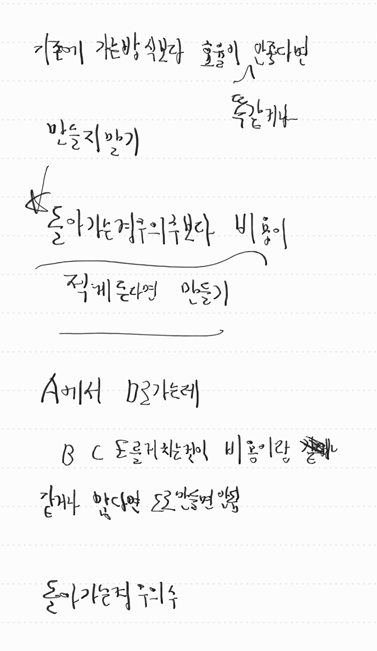 기존에 가는방식보다 효율이 안좋다면
똑같거나
만들지 말기
돌아가는경우의수보다 비용이
적게든다면 만들기
A에서 D로가는데
B C 도를거치는것이 비용이랑
같거나 많다면 도로만들면안됨
돌아가는경우의수